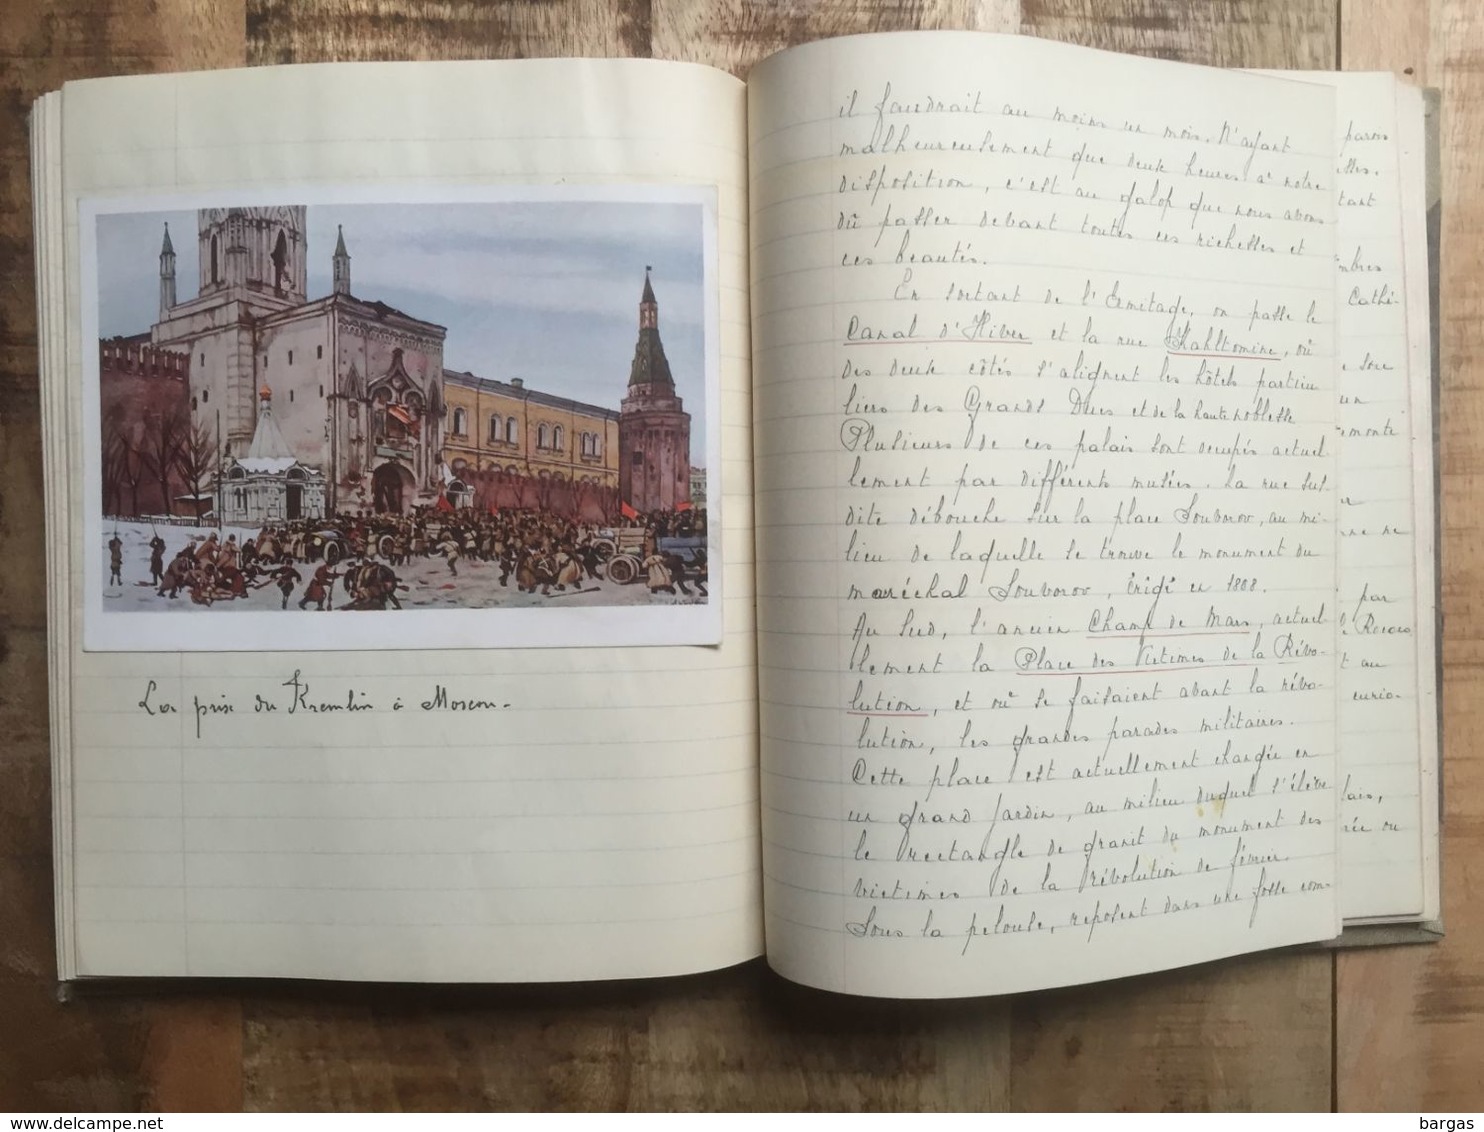 La prise du Kremlin à Moscou.
il faudrait au moins un mois. N'ayant
malheureusement que deux heures à notre
disposition, c'est au galop que nous avons
dû passer devant toutes ces richesses et
ces beautés.
En sortant de l'Ermitage, on passe le
Canal d'Hiver et la rue Khaltomine, où
des deux côtés s'alignent les hôtels particu
liers des Grands Ducs et de la haute noblesse
Plusieurs de ces palais sont occupés actuel
lement par différents musées. La rue sus
dite débouche sur la place Souvorov, au mi-
lieu de laquelle se trouve le monument du
maréchal Souvorov, érigé en 1808.
Au Sud, l'ancien Champ de Mars, actuel
lement la Place des Victimes de la Révo-
lution, et où se faisaient avant la révo-
lution, les grandes parades militaires.
Cette place est actuellement changée en
un grand jardin, au milieu duquel s'élève
le rectangle de granit du monument des
victimes de la révolution de février.
Sous la pelouse, reposent dans une fosse com-
parois
tant
mbres
Cathé-
un
emonte
ne
par
au
curio-
lais,
rée ou
delcampe.net
bargas